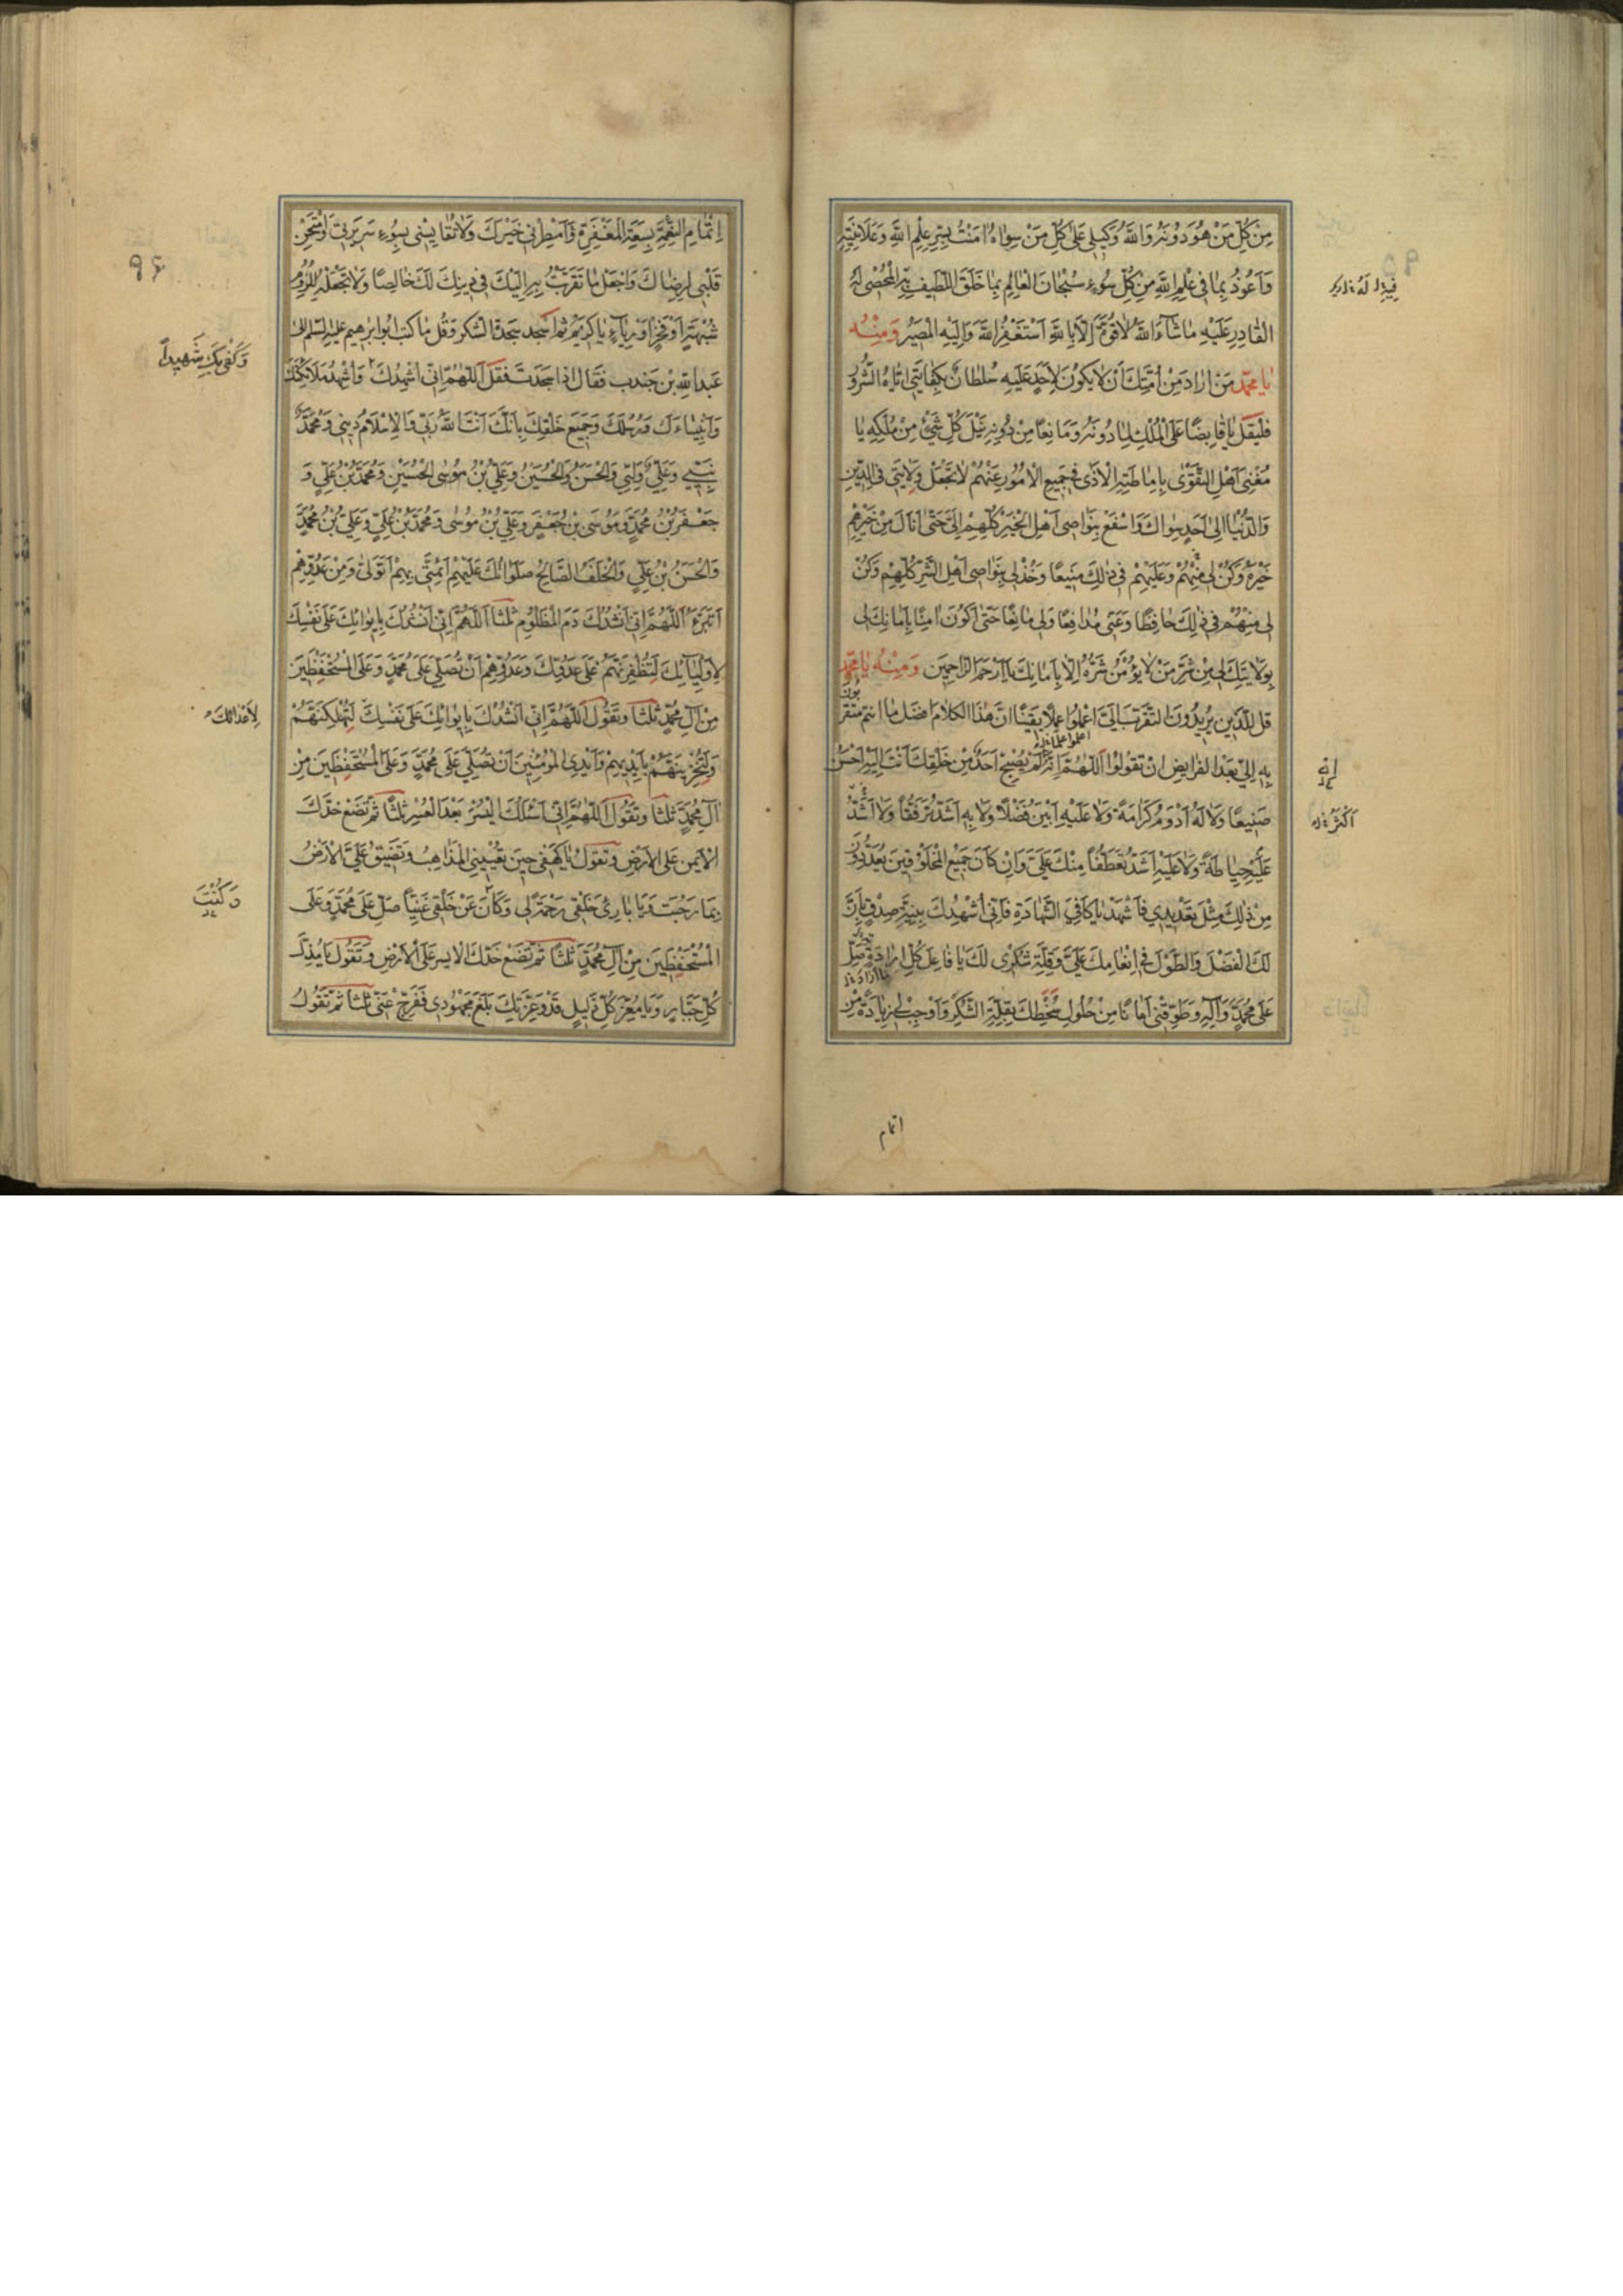 مِنْ كُلِّ مَنْ هُوَ دُونَهُ وَاللّٰهُ وَكِيلِي عَلٰى كُلِّ مَنْ سِوَاهُ اٰمَنْتُ بِسِرِّ عِلْمِ اللّٰهِ وَعَلَانِيَتِهِ
وَاَعُوذُ بِمَا فِي عِلْمِ اللّٰهِ مِنْ كُلِّ سُوءٍ سُبْحَانَ الْعَالِمِ بِمَا خَلَقَ اللَّطِيفِ الْمُحْصِي لَهُ
الْقَادِرِ عَلَيْهِ مَا شَآءَ اللّٰهُ لَا قُوَّةَ اِلَّا بِاللّٰهِ اَسْتَغْفِرُ اللّٰهَ وَاِلَيْهِ الْمَصِيرُ وَمِنْهُ
يَا مُحَمَّدُ مَنْ اَرَادَ مِنْ اُمَّتِكَ اَنْ لَا يَكُونَ لِاَحَدٍ عَلَيْهِ سُلْطَانٌ بِكِفَايَتِي اِيَّاهُ الشُّرُورَ
فَلْيَقُلْ يَا قَابِضًا عَلَى الْمُلْكِ لِمَا دُونَهُ وَمَانِعًا مِنْ دُونِهِ نَيْلَ كُلِّ شَيْءٍ مِنْ مُلْكِهِ يَا
مُغْنِيَ اَهْلِ التَّقْوٰى بِاِمَاطَتِهِ الْاَذٰى فِي جَمِيعِ الْاُمُورِ عَنْهُمْ لَا تَجْعَلْ وَلَايَتِي فِي الدِّينِ
وَالدُّنْيَا اِلٰى اَحَدٍ سِوَاكَ وَاسْفَعْ بِنَوَاصِي اَهْلِ الْخَيْرِ كُلِّهِمْ اِلَيَّ حَتّٰى اَنَالَ مِنْ خَيْرِهِمْ
خَيْرَهُ وَكُنْ لِي مِنْهُمْ وَعَلَيْهِمْ فِي ذٰلِكَ مَنِيعًا وَخُذْ لِي بِنَوَاصِي اَهْلِ الشَّرِّ كُلِّهِمْ وَكُنْ
لِي مِنْهُمْ فِي ذٰلِكَ حَافِظًا وَعَنِّي مُدَافِعًا وَلِي مَانِعًا حَتّٰى اَكُونَ اٰمِنًا بِاَمَانِكَ لِي
بِوَلَايَتِكَ لِي مِنْ شَرِّ مَنْ لَا يُؤْمَنُ شَرُّهُ اِلَّا بِاَمَانِكَ يَا اَرْحَمَ الرَّاحِمِينَ وَمِنْهُ يَا مُحَمَّدُ
قُلْ لِلَّذِينَ يُرِيدُونَ التَّقَرُّبَ اِلَيَّ اعْلَمُوا عِلْمًا يَقِينًا اَنَّ هٰذَا الْكَلَامَ اَفْضَلُ مَا اَنْتُمْ مُتَقَرِّبُونَ
بِهِ اِلَيَّ بَعْدَ الْفَرَايِضِ اَنْ تَقُولُوا اَللّٰهُمَّ اِنَّهُ لَمْ يُصْبِحْ اَحَدٌ مِنْ خَلْقِكَ اَنْتَ اِلَيْهِ اَحْسَنُ
صَنِيعًا وَلَا لَهُ اَدْوَمُ كَرَامَةً وَلَا عَلَيْهِ اَبْيَنُ فَضْلًا وَلَا بِهِ اَشَدُّ تَرَفُّقًا وَلَا اَشَدُّ
عَلَيْهِ حِيَاطَةً وَلَا عَلَيْهِ اَشَدُّ تَعَطُّفًا مِنْكَ عَلَيَّ وَاِنْ كَانَ جَمِيعُ الْمَخْلُوقِينَ يُعَدِّدُونَ
مِنْ ذٰلِكَ مِثْلَ تَعْدِيدِي فَاشْهَدْ يَا كَافِيَ الشَّهَادَةِ فَاِنِّي اُشْهِدُكَ بِنِيَّةِ صِدْقٍ بِاَنَّ
لَكَ الْفَضْلَ وَالطَّوْلَ فِي اِنْعَامِكَ عَلَيَّ وَقِلَّةِ شُكْرِي لَكَ يَا فَاعِلَ كُلِّ اِرَادَةٍ صَلِّ
عَلٰى مُحَمَّدٍ وَاٰلِهِ وَطَوِّقْنِي اَمَانًا مِنْ حُلُولِ سَخَطِكَ بِقِلَّةِ الشُّكْرِ وَاَوْجِبْ لِي زِيَادَةً مِنْ
اتمام
اِتْمَامِ النِّعْمَةِ بِسَعَةِ الْمَغْفِرَةِ وَاَمْطِرْنِي خَيْرَكَ وَلَا تُقَايِسْنِي بِسُوءِ سَرِيرَتِي وَامْتَحِنْ
قَلْبِي لِرِضَاكَ وَاجْعَلْ مَا تَقَرَّبْتُ بِهِ اِلَيْكَ فِي دِينِكَ لَكَ خَالِصًا وَلَا تَجْعَلْهُ لِلُزُومِ
شُبْهَةٍ اَوْ فَخْرٍ اَوْ رِيَآءٍ يَا كَرِيمُ ثم اسجد سجدة الشكر وقل ما كتب ابو ابرهيم عليه السلم الى
عبد الله بن جندب فقال اذا سجدت فقل اَللّٰهُمَّ اِنِّي اُشْهِدُكَ وَاُشْهِدُ مَلَائِكَتَكَ
وَاَنْبِيَاءَكَ وَرُسُلَكَ وَجَمِيعَ خَلْقِكَ بِاَنَّكَ اَنْتَ اللّٰهُ رَبِّي وَالْاِسْلَامُ دِينِي وَمُحَمَّدٌ
نَبِيِّي وَعَلِيٌّ وَلِيِّي وَالْحَسَنُ وَالْحُسَيْنُ وَعَلِيُّ بْنُ الْحُسَيْنِ وَمُحَمَّدُ بْنُ عَلِيٍّ وَ
جَعْفَرُ بْنُ مُحَمَّدٍ وَمُوسَى بْنُ جَعْفَرٍ وَعَلِيُّ بْنُ مُوسٰى وَمُحَمَّدُ بْنُ عَلِيٍّ وَعَلِيُّ بْنُ مُحَمَّدٍ
وَالْحَسَنُ بْنُ عَلِيٍّ وَالْخَلَفُ الصَّالِحُ صَلَوَاتُكَ عَلَيْهِمْ اَئِمَّتِي بِهِمْ اَتَوَلّٰى وَمِنْ عَدُوِّهِمْ
اَتَبَرَّءُ اَللّٰهُمَّ اِنِّي اَنْشُدُكَ دَمَ الْمَظْلُومِ ثلثا اَللّٰهُمَّ اِنِّي اَنْشُدُكَ بِاِيوَائِكَ عَلٰى نَفْسِكَ
لِاَوْلِيَآئِكَ لَتُظْفِرَنَّهُمْ عَلٰى عَدُوِّكَ وَعَدُوِّهِمْ اَنْ تُصَلِّيَ عَلٰى مُحَمَّدٍ وَعَلَى الْمُسْتَحْفَظِينَ
مِنْ اٰلِ مُحَمَّدٍ ثلثا وتقول اَللّٰهُمَّ اِنِّي اَنْشُدُكَ بِاِيوَائِكَ عَلٰى نَفْسِكَ لَتُهْلِكَنَّهُمْ
وَلَتُخْزِيَنَّهُمْ بِاَيْدِيهِمْ وَاَيْدِي الْمُؤْمِنِينَ اَنْ تُصَلِّيَ عَلٰى مُحَمَّدٍ وَعَلَى الْمُسْتَحْفَظِينَ مِنْ
اٰلِ مُحَمَّدٍ ثلثا وتقول اَللّٰهُمَّ اِنِّي اَسْئَلُكَ الْيُسْرَ بَعْدَ الْعُسْرِ ثلثا ثم تضع خدك
الايمن على الارض وتقول يَا كَهْفِي حِينَ تُعْيِينِي الْمَذَاهِبُ وَتَضِيقُ عَلَيَّ الْاَرْضُ
بِمَا رَحُبَتْ وَيَا بَارِئَ خَلْقِي رَحْمَةً لِي وَكَانَ عَنْ خَلْقِي غَنِيًّا صَلِّ عَلٰى مُحَمَّدٍ وَعَلَى
الْمُسْتَحْفَظِينَ مِنْ اٰلِ مُحَمَّدٍ ثلثا ثم تضع خدك الايسر على الارض وتقول يَا مُذِلَّ
كُلِّ جَبَّارٍ وَيَا مُعِزَّ كُلِّ ذَلِيلٍ قَدْ وَعِزَّتِكَ بَلَغَ مَجْهُودِي فَفَرِّجْ عَنِّي ثلثا ثم تقول
وَكَفٰى بِكَ شَهِيدًا
لِاَعْدَائِكَ
وَكُنْتَ